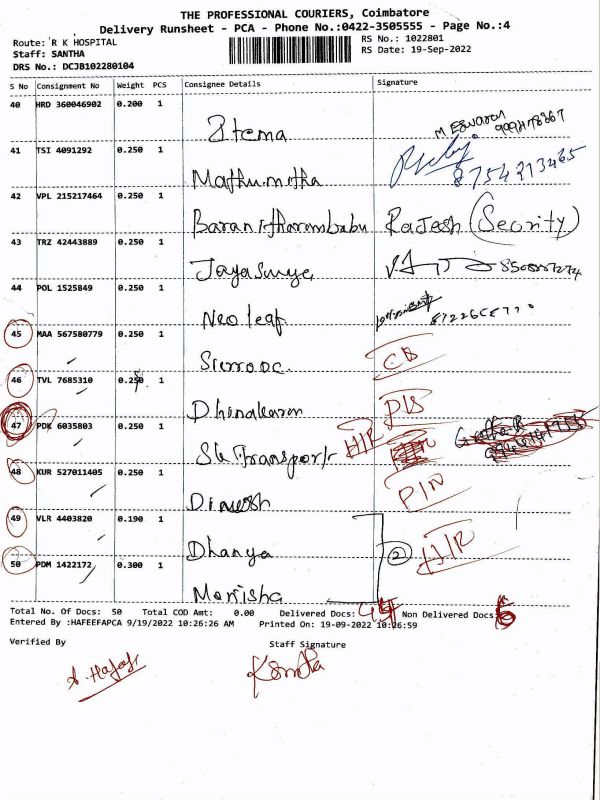 THE PROFESSIONAL COURIERS, Coimbatore
Delivery Runsheet - PCA - Phone No.:0422-3505555 - Page No.:4
Route: R K HOSPITAL
RS No.: 1022801
Staff: SANTHA
RS Date: 19-Sep-2022
DRS No.: DCJB102280104
S No Consignment No Weight PCS Consignee Details Signature
40 HRD 360046902 0.200 1
Stema M Eswaran
41 TSI 4091292 0.250 1
Mathumitha 8754213465
42 VPL 215217464 0.250 1
Rajesh (Secrity)
43 TRZ 42443889 0.250 1
Jayasurya
44 POL 1525849 0.250 1
Neo leaf
45 MAA 567580779 0.250 1
CB
46 TVL 7685310 0.250 1
Dhinakaran DIS
47 PDK 6035803 0.250 1
Sk Transport HIR
48 KUR 527011405 0.250 1
Dinesh PIN
49 VLR 4403820 0.190 1
Dhanya 2 HIR
50 PDM 1422172 0.300 1
Monisha
Total No. Of Docs: 50 Total COD Amt: 0.00 Delivered Docs: Non Delivered Docs:
Entered By :HAFEEFAPCA 9/19/2022 10:26:26 AM Printed On: 19-09-2022 10:26:59
Verified By Staff Signature